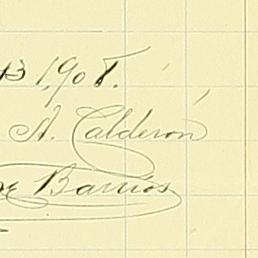 13 1,908.
A. Calderón
Barrios